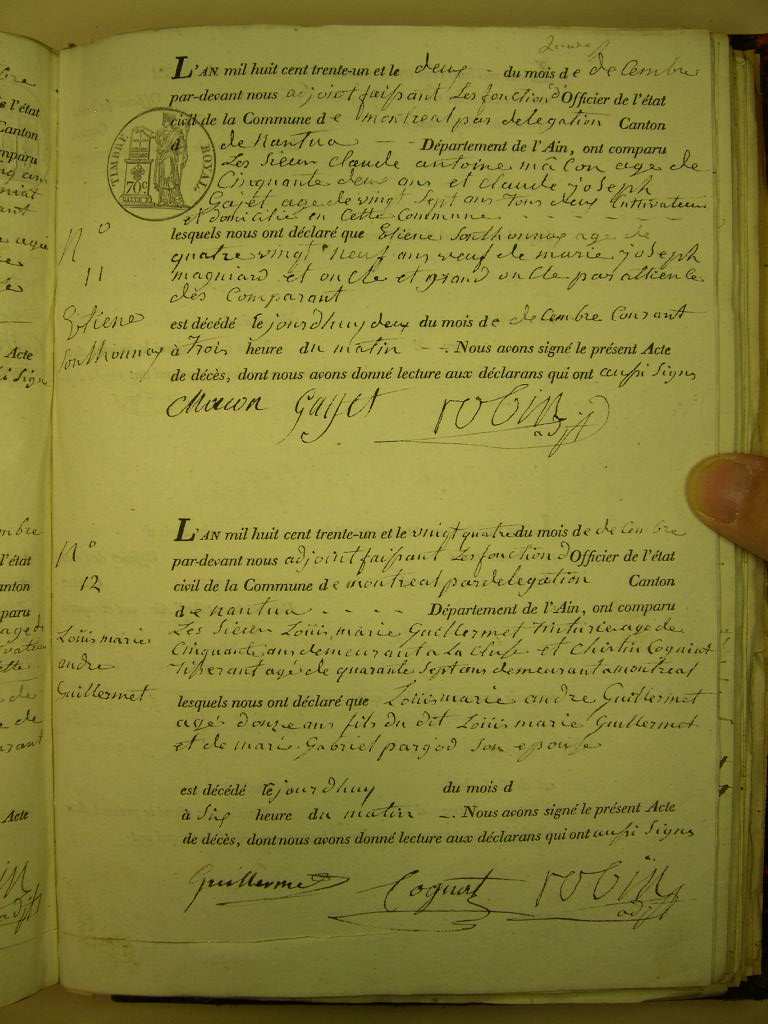 L'AN mil huit cent trente-un et le deux - du mois de decembre
par-devant nous adjoint faissant Les fonction d'Officier de l'état
civil de la Commune de montreal par delegation Canton
d de nantua - - Département de l'Ain, ont comparu
TIMBRE ROYAL. 70c
Les Sieur Claude antoine mâcon age de
Cinquante deux ans et Claude joseph
Gajet age de vingt Sept ans tous deux Cultivateur
et domicilie en Cette Commune - - - - - -
N°
11
Etiene
Sonthonnax
lesquels nous ont déclaré que Etiene Sonthonnax age de
quatre vingt neuf ans veuf de marie joseph
magniard et oncle et grand oncle par allience
dés Comparant
est décédé le jourdhuy deux du mois de decembre Courant
à trois heure du matin - -. Nous avons signé le présent Acte
de décès, dont nous avons donné lecture aux déclarans qui ont aussi Signs
Macon Gajet robin
adjt
N°
12
Loüis marie
andre
Guillermet
L'AN mil huit cent trente-un et le vingt quatre du mois de decembre
par-devant nous adjoint faissant Les fonction d'Officier de l'état
civil de la Commune de montreal par delegation Canton
de nantua - - - - Département de l'Ain, ont comparu
Les Sieur Loüis marie Guillermet tinturie age de
Cinquante ans demeurant a La Cluse et Christin Cogniat
tisserant agé de quarante Sept ans demeurant a montreal
lesquels nous ont déclaré que Loüis marie andre Guillermet
agés douze ans fils du dit Loüis marie Guillermet
et de marie Gabriel pargod Son epouse
est décédé le jourdhuy du mois d
à Six heure du matin -. Nous avons signé le présent Acte
de décès, dont nous avons donné lecture aux déclarans qui ont aussi Signs
Guillermet Cogniat robin
adjt